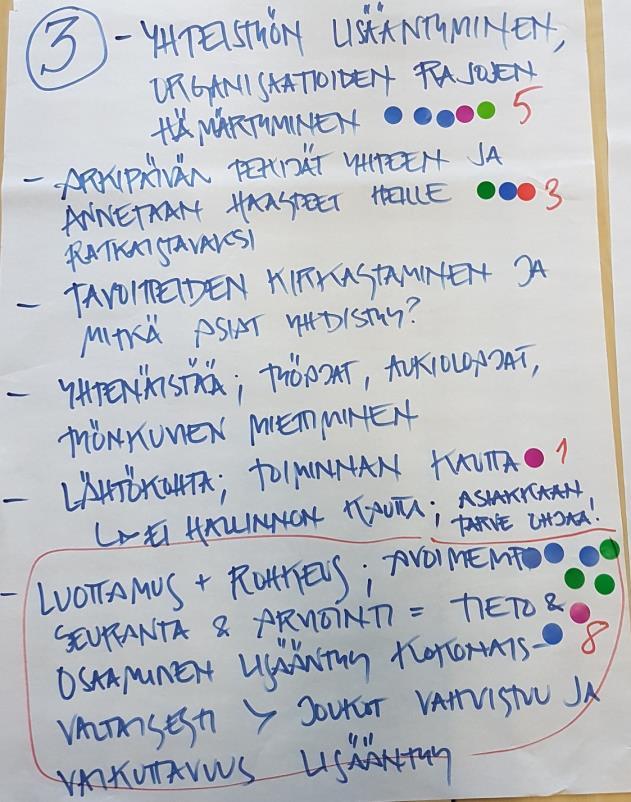 3 - YHTEISTYÖN LISÄÄNTYMINEN,
ORGANISAATIOIDEN RAJOJEN
HÄMÄRTYMINEN 5
- ARKIPÄIVÄN TEKIJÄT YHTEEN JA
ANNETAAN HAASTEET HEILLE 3
RATKAISTAVAKSI
- TAVOITTEIDEN KIRKASTAMINEN JA
MITKÄ ASIAT YHDISTYY?
- YHTENÄISTÄÄ; TYÖAJAT, AUKIOLOAJAT,
TYÖNKUVIEN MIETTIMINEN
- LÄHTÖKOHTA; TOIMINNAN KAUTTA 1
↳ EI HALLINNON KAUTTA; ASIAKKAAN
TARVE OHJAA!
- LUOTTAMUS + ROHKEUS; AVOIMEMPI
SEURANTA & ARVIOINTI = TIETO &
OSAAMINEN LISÄÄNTYY KOKONAIS- 8
VALTAISESTI > JOUKOT VAHVISTUU JA
VAIKUTTAVUUS LISÄÄNTYY